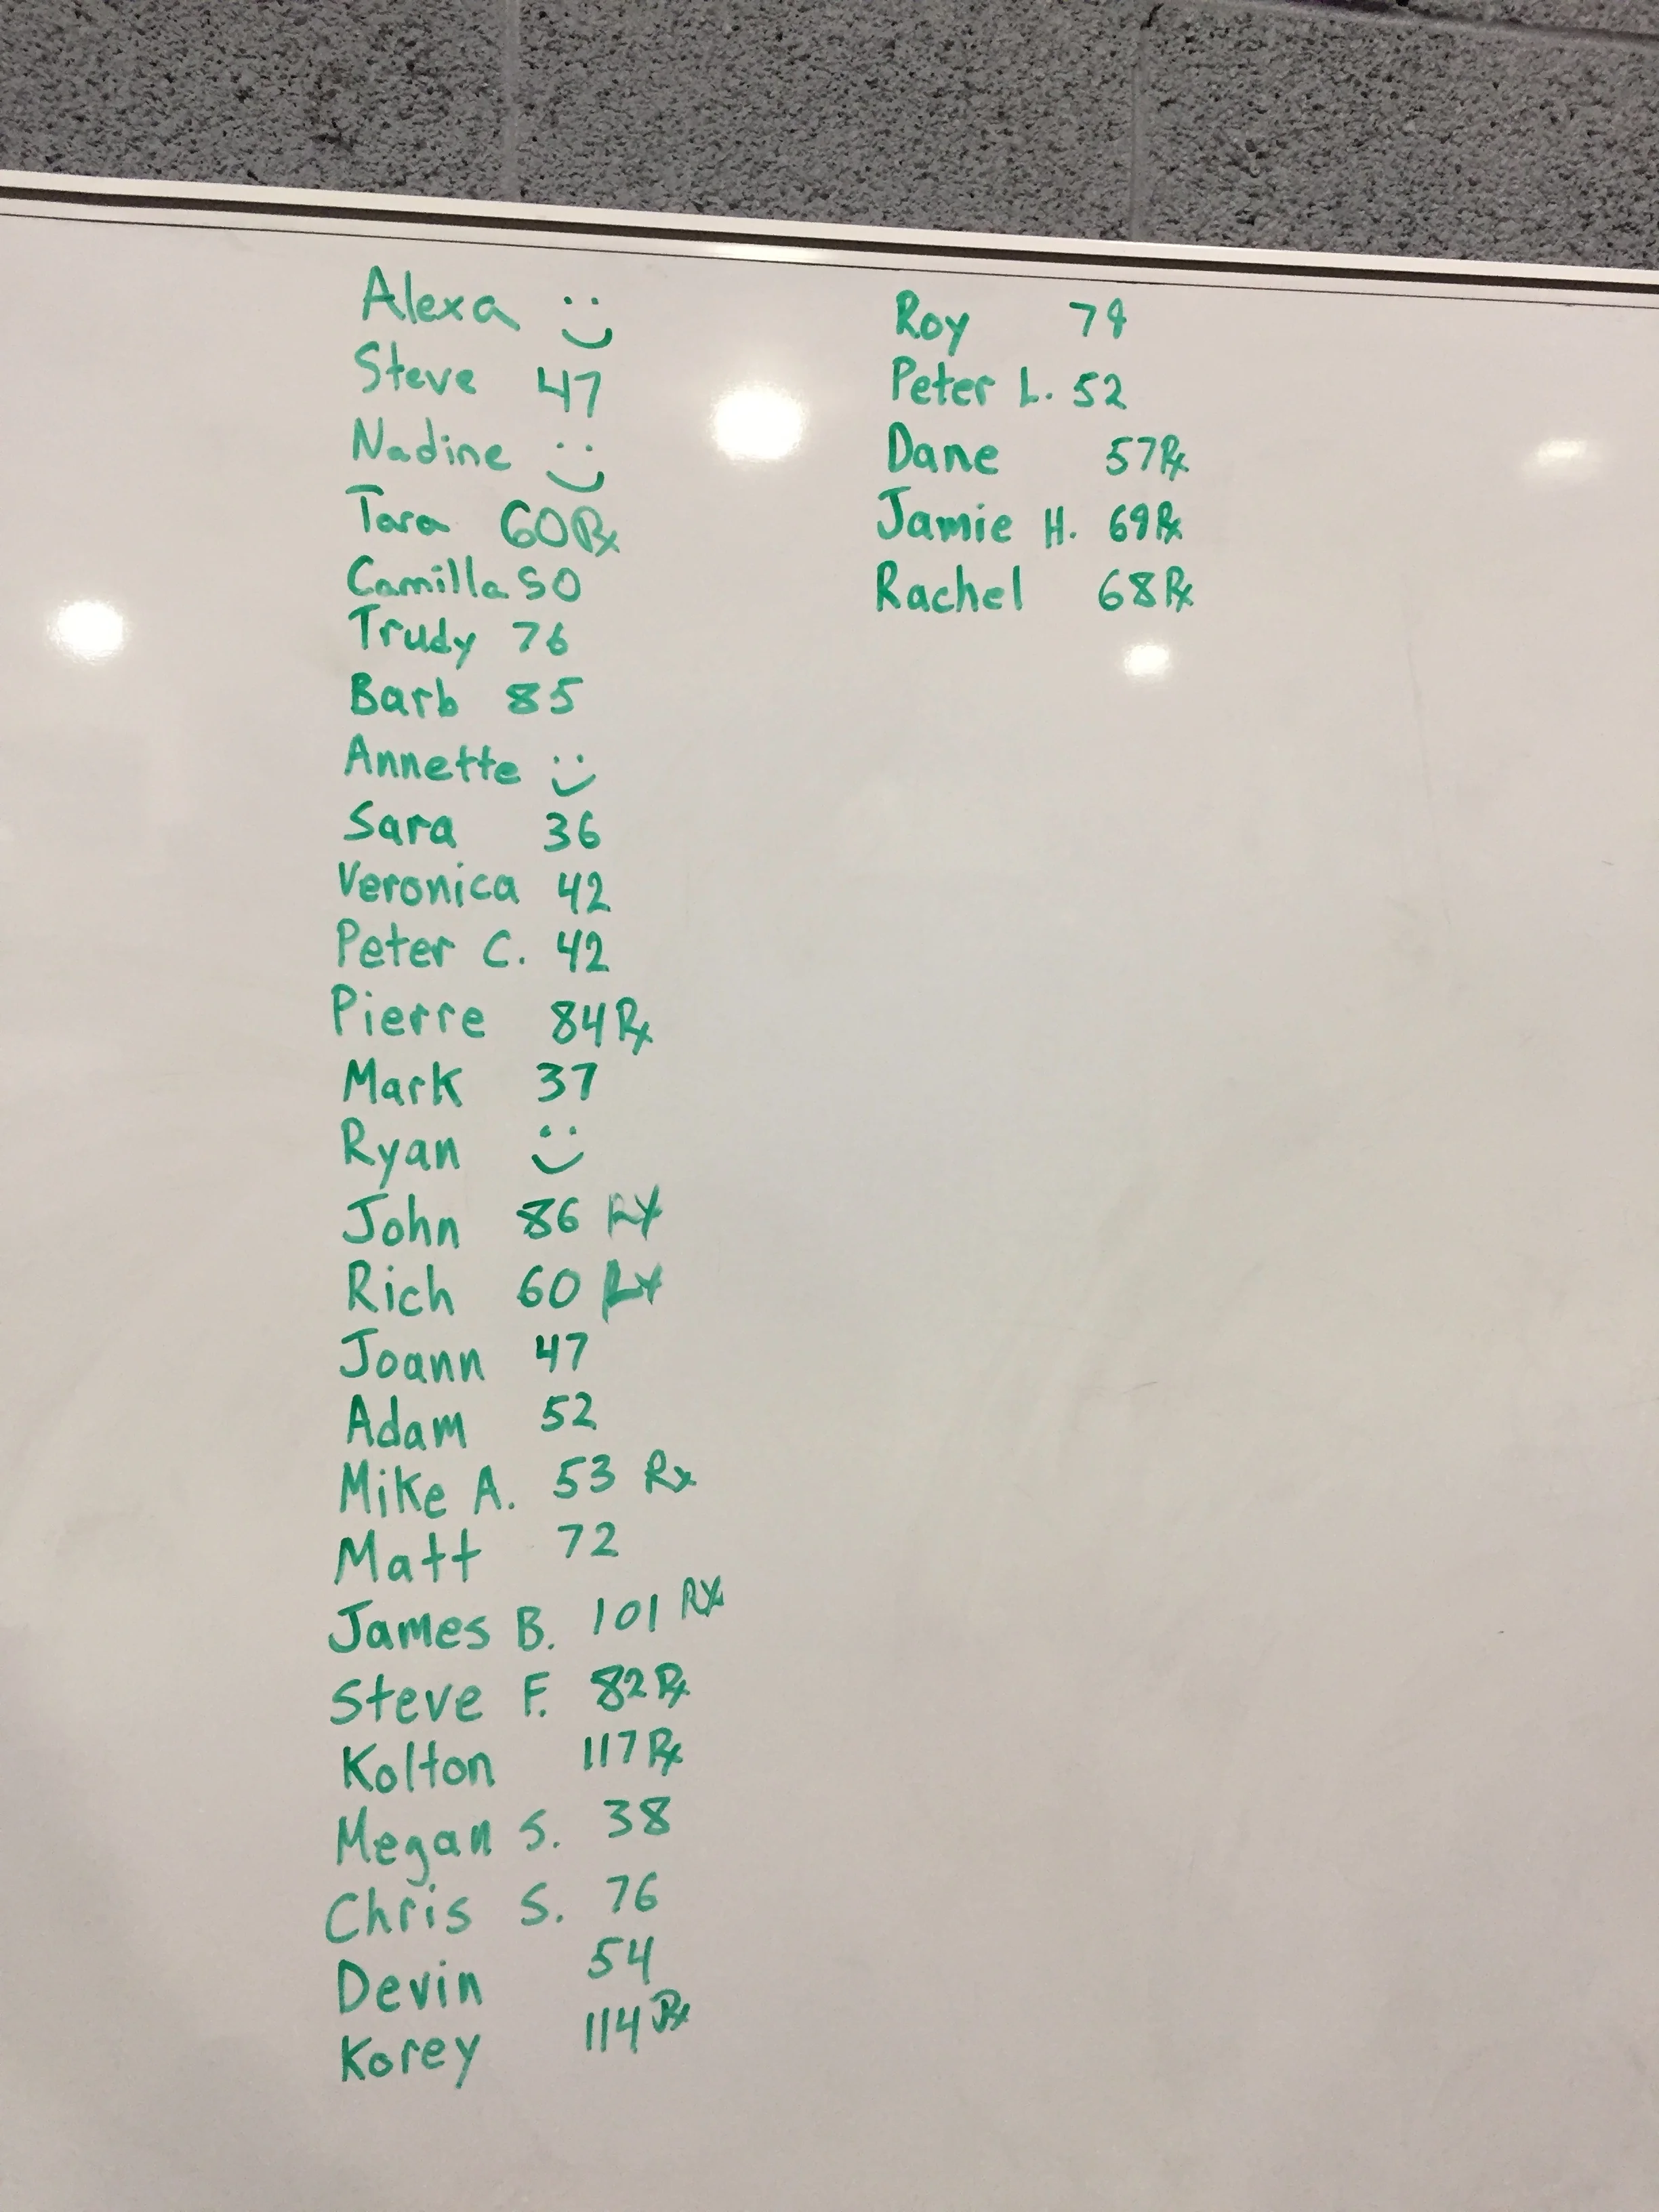 Alexa :)
Steve 47
Nadine :)
Tara 60 Rx
Camilla 50
Trudy 76
Barb 85
Annette :)
Sara 36
Veronica 42
Peter C. 42
Pierre 84 Rx
Mark 37
Ryan :)
John 86 RX
Rich 60 Rx
Joann 47
Adam 52
Mike A. 53 Rx
Matt 72
James B. 101 RX
Steve F. 82 Rx
Kolton 117 Rx
Megan S. 38
Chris S. 76
Devin 54
Korey 114 Rx
Roy 79
Peter L. 52
Dane 57 Rx
Jamie H. 69 Rx
Rachel 68 Rx